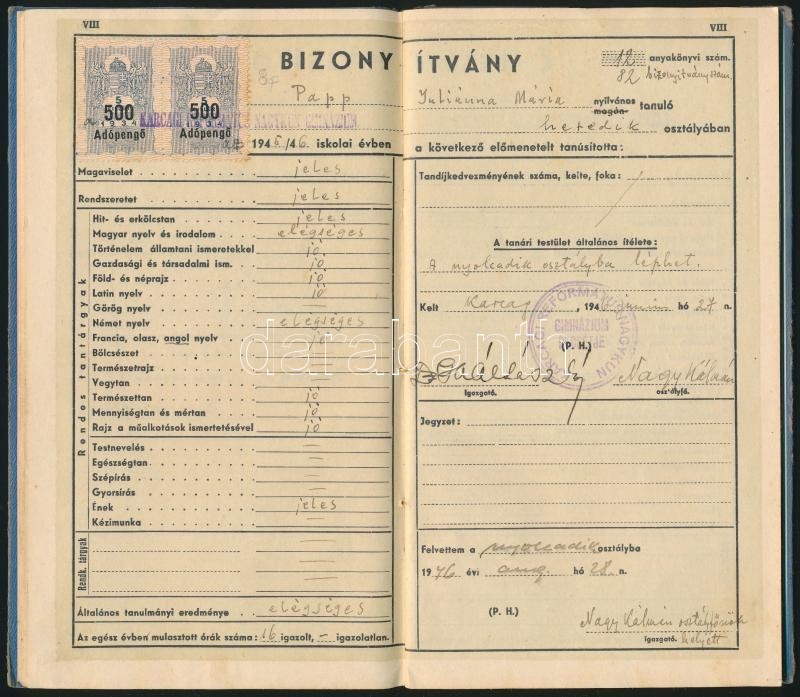 VIII
500
1934
Adópengő
500
1934
Adópengő
BIZONY
Papp
KARCAGI NAGYKUN
1945/46 iskolai évben
Magaviselet jeles
Rendszeretet jeles
Rendes tantárgyak
Hit- és erkölcstan jeles
Magyar nyelv és irodalom elégséges
Történelem államtani ismeretekkel jó
Gazdasági és társadalmi ism. jó
Föld- és néprajz jó
Latin nyelv jó
Görög nyelv —
Német nyelv elégséges
Francia, olasz, angol nyelv jó
Bölcsészet —
Természetrajz —
Vegytan —
Természettan jó
Mennyiségtan és mértan jó
Rajz a műalkotások ismertetésével jó
Testnevelés —
Egészségtan —
Szépírás —
Gyorsírás —
Ének jeles
Kézimunka —
Rendk. tárgyak
Általános tanulmányi eredménye elégséges
Az egész évben mulasztott órák száma: 16 igazolt, – igazolatlan.
VIII
ÍTVÁNY
12 anyakönyvi szám.
82 bizonyítványszám.
Juliánna Mária nyilvános magán- tanuló
hetedik osztályában
a következő előmenetelt tanúsította:
Tandíjkedvezményének száma, kelte, foka:
A tanári testület általános ítélete:
A nyolcadik osztályba léphet.
Kelt Karcag, 1946 június hó 27 n.
KARCAGI REFORMÁTUS NAGYKUN
GIMNÁZIUM
(P. H.)
Nagy Kálmán
igazgató.
osztályfő.
Jegyzet:
Felvettem a nyolcadik osztályba
1946 évi aug. hó 28. n.
(P. H.)
Nagy Kálmán osztályfőnök
igazgató. helyett
darabanth.com